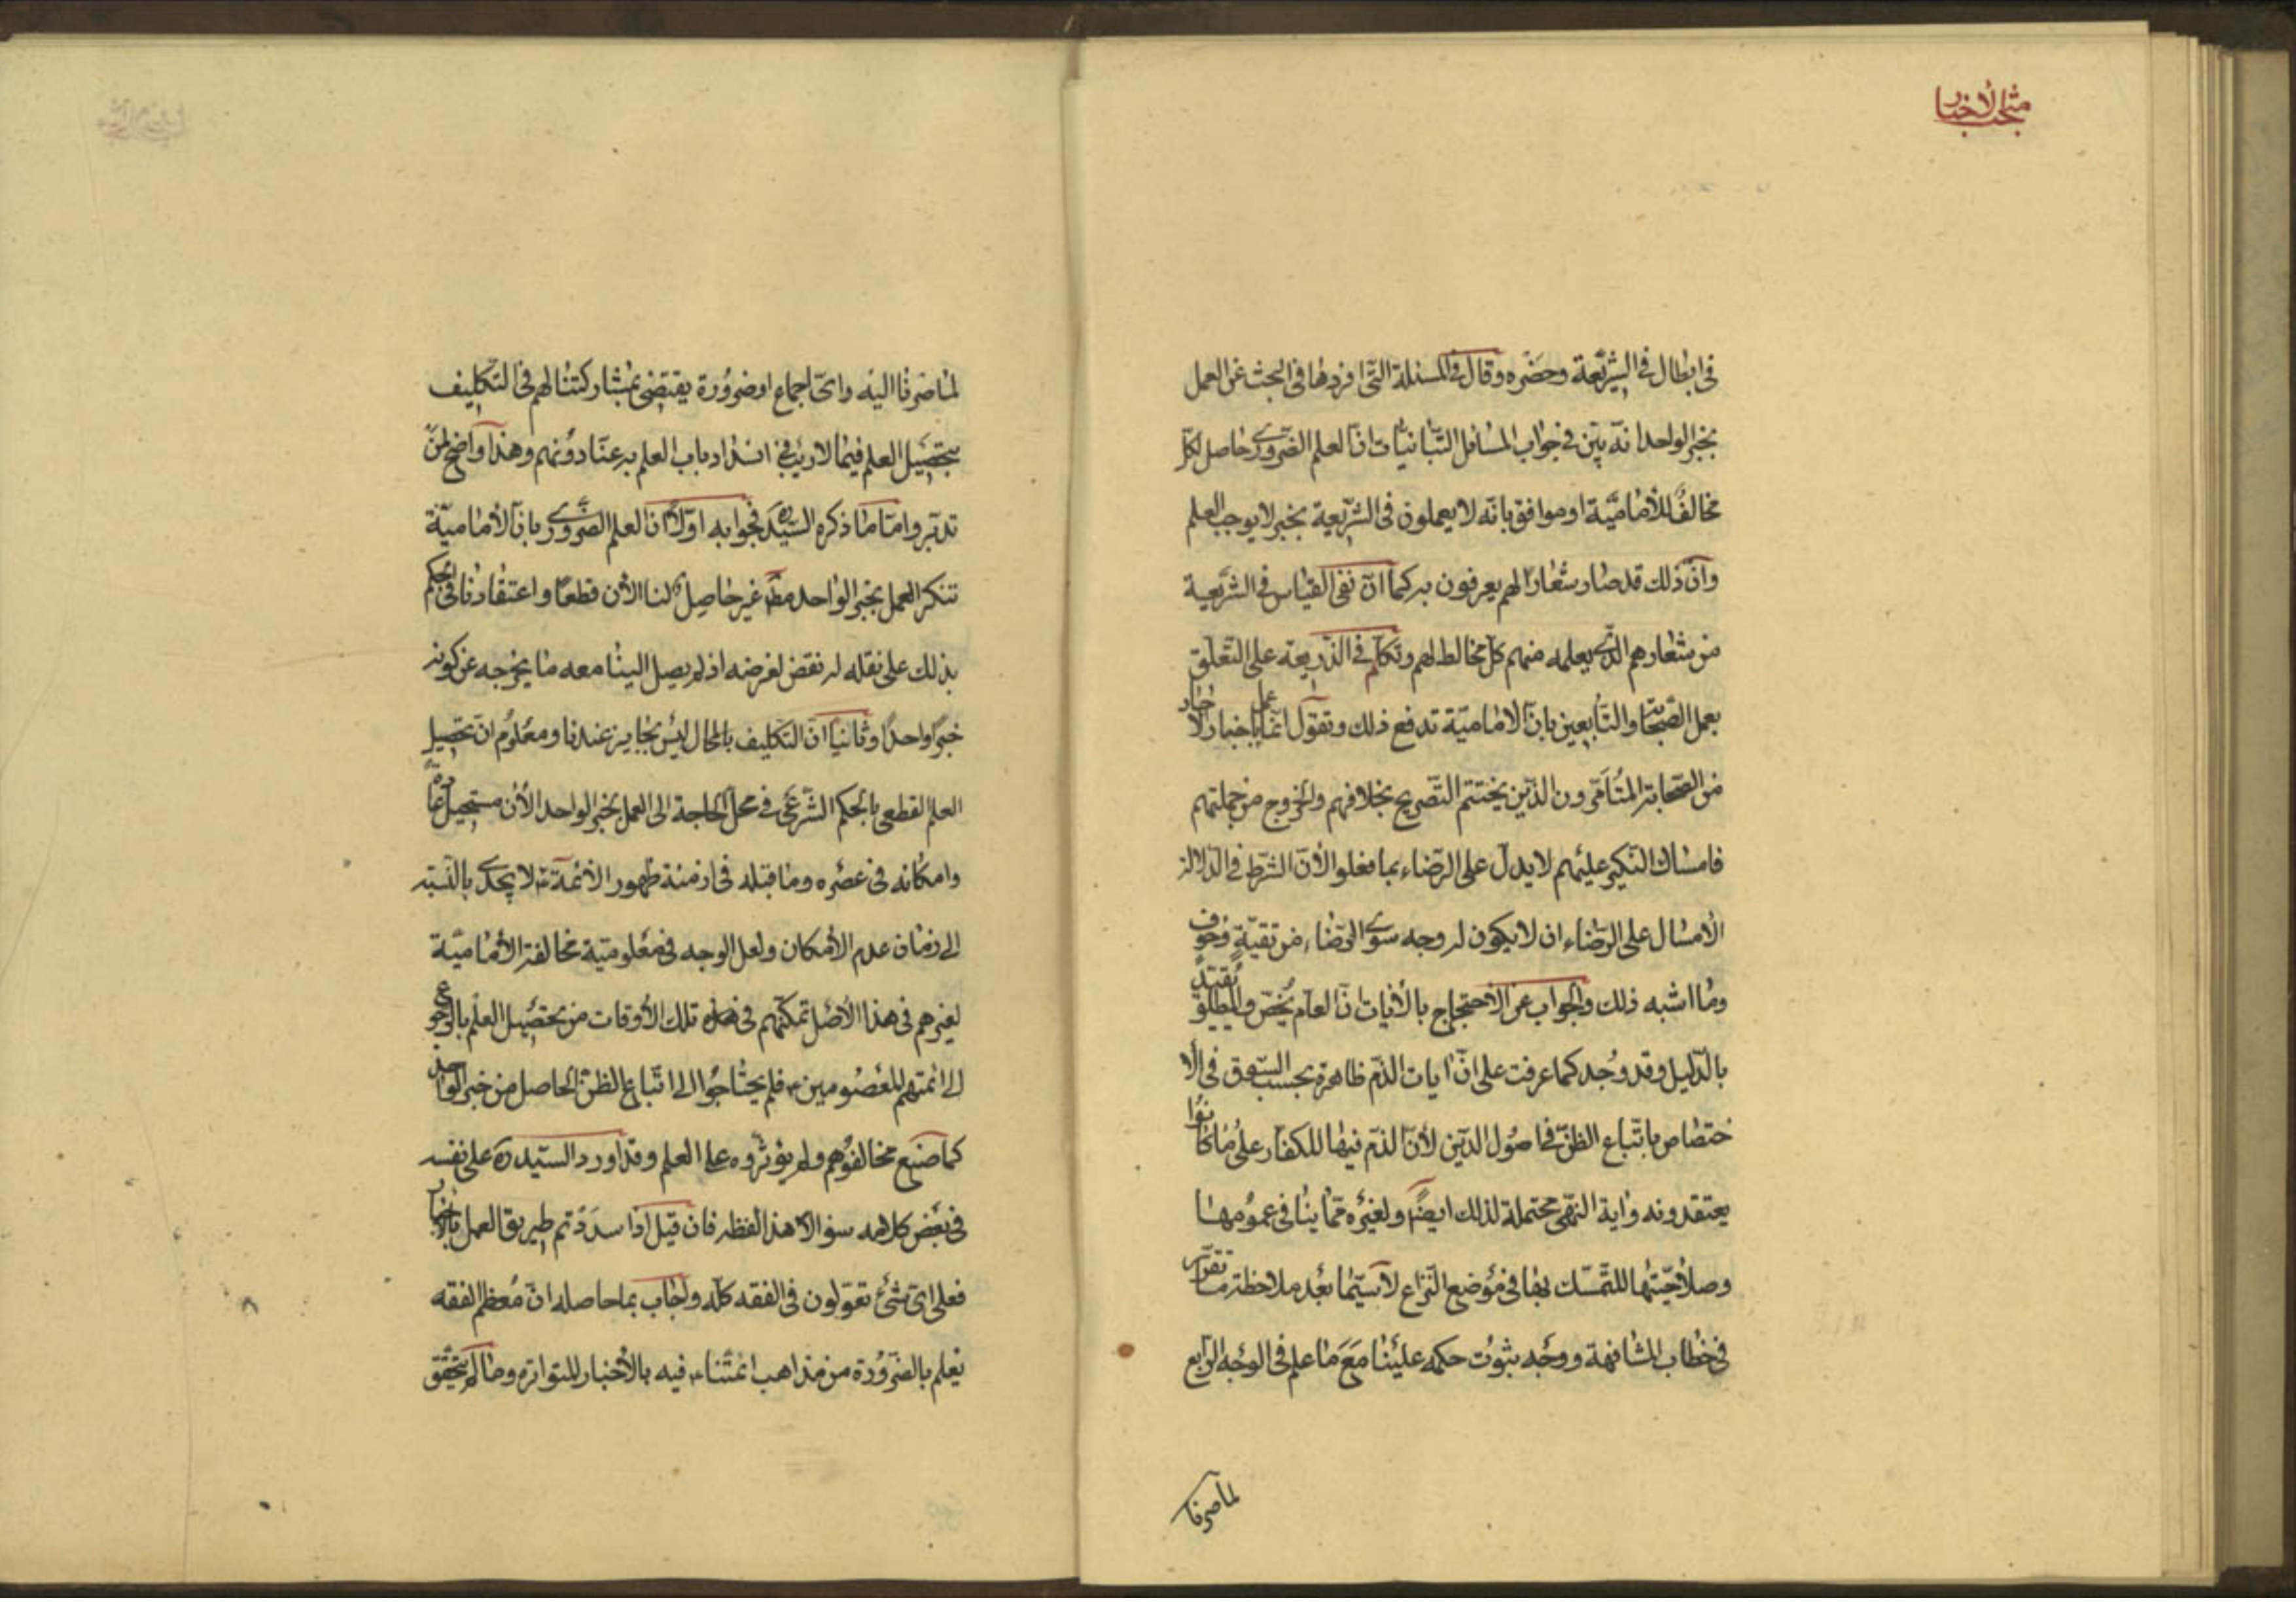 مبحث الأخبار
فى ابطال فى الشريعة وحضره وقال فى المسئلة التى افردها فى البحث عن العمل
بخبر الواحد انه بين فى جواب المسائل التبانيات ان العلم الضرورى حاصل لكل
مخالف للأمامية او موافق بانه لا يعملون فى الشريعة بخبر لا يوجب العلم
وان ذلك قد صار شعارا لهم يعرفون به كما ان نفى القياس فى الشريعة
من شعارهم الذى يعلمه منهم كل مخالط لهم وتكلم فى الذريعة على التعلق
بعمل الصحابة والتابعين بان الامامية تدفع ذلك وتقول انما عمل باخبار الاحاد
من الصحابة المتأمرون الذين يختتم التصريح بخلافهم والخروج من جملتهم
فامساك النكير عليهم لا يدل على الرضاء بما فعلوا لأن الشرط فى الدلالة
الامسال على الرضاء ان لا يكون له وجه سوى الرضاء من تقية وخوف
وما اشبه ذلك والجواب عن الاحتجاج بالأيات ان العام يخص والمطلق يقيد
بالدليل وقد وجد كما عرفت على ان ايات الذم ظاهرة بحسب السوق فى الا
ختصاص باتباع الظن فى اصول الدين لأن الذم فيها للكفار على ما كانوا
يعتقدونه واية النهى محتملة لذلك ايضا ولغيره مما ينافى عمومها
وصلاحيتها للتمسك بها فى موضع النزاع لا سيما بعد ملاحظة ما تقرر
فى خطاب المشافهة ووجه ثبوت حكمه علينا مع ما علم فى الوجه الرابع
لما صرفنا
لما صرفنا اليه واى اجماع او ضرورة يقتضى بمشاركتنا لهم فى التكليف
بتحصيل العلم فيما لا ريب فى انسداد باب العلم به عنا دونهم وهذا واضح لمن
تدبر واما ما ذكره السيد ره فجوابه اولا ان العلم الضرورى بان الأمامية
تنكر العمل بخبر الواحد مط غير حاصل لنا الأن قطعا واعتقادنا فى الحكم
بذلك على نقله له نقض لغرضه اذ لم يصل الينا معه ما يخرجه عن كونه
خبرا واحدا وثانيا ان التكليف بالمحال ليس بجايز عندنا ومعلوم ان تحصيل
العلم القطعى بالحكم الشرعى فى محل الحاجة الى العمل بخبر الواحد الأن مستحيل عادة
وامكانه فى عصره وما قبله فى ازمنة ظهور الأئمة ع لا يجدى بالنسبة
الى زمان عدم الأمكان ولعل الوجه فى معلومية مخالفة الأمامية
لغيرهم فى هذا الأصل تمكنهم فى تلك الأوقات من تحصيل العلم بالرجوع
الى ائمتهم المعصومين ع فلم يحتاجوا الى اتباع الظن الحاصل من خبر الواحد
كما صنع مخالفوهم ولم يؤثروه على العلم وقد اورد السيد ره على نفسه
فى بعض كلامه سوالا هذا لفظه فان قيل اذا سددتم طريق العمل بالأخبار
فعلى اى شئ تعولون فى الفقه كله واجاب بما حاصله ان معظم الفقه
يعلم بالضرورة من مذاهب ائمتنا ع فيه بالأخبار المتواترة وما لم يتحقق